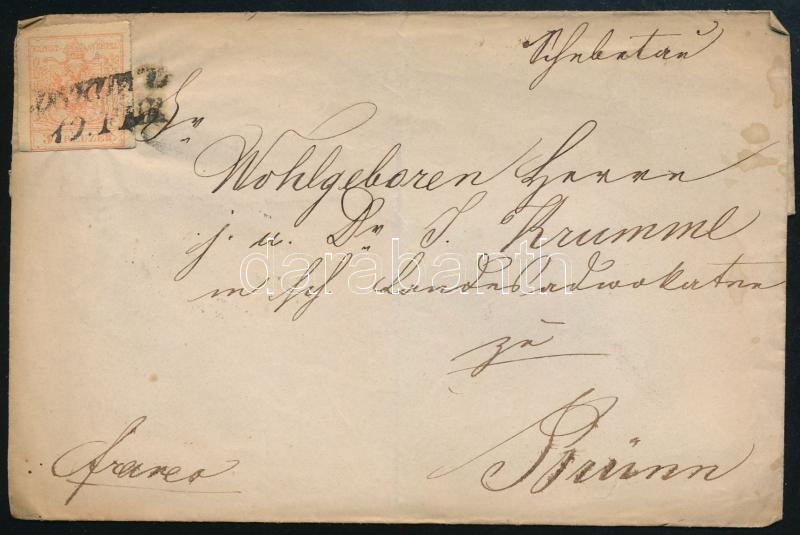 Schebetau
Sr
Wohlgeboren Herrn
j. u. Dr J. Krumml
m sch Landesadwokaten
zu
Brünn
franco
KREUZER
darabanth